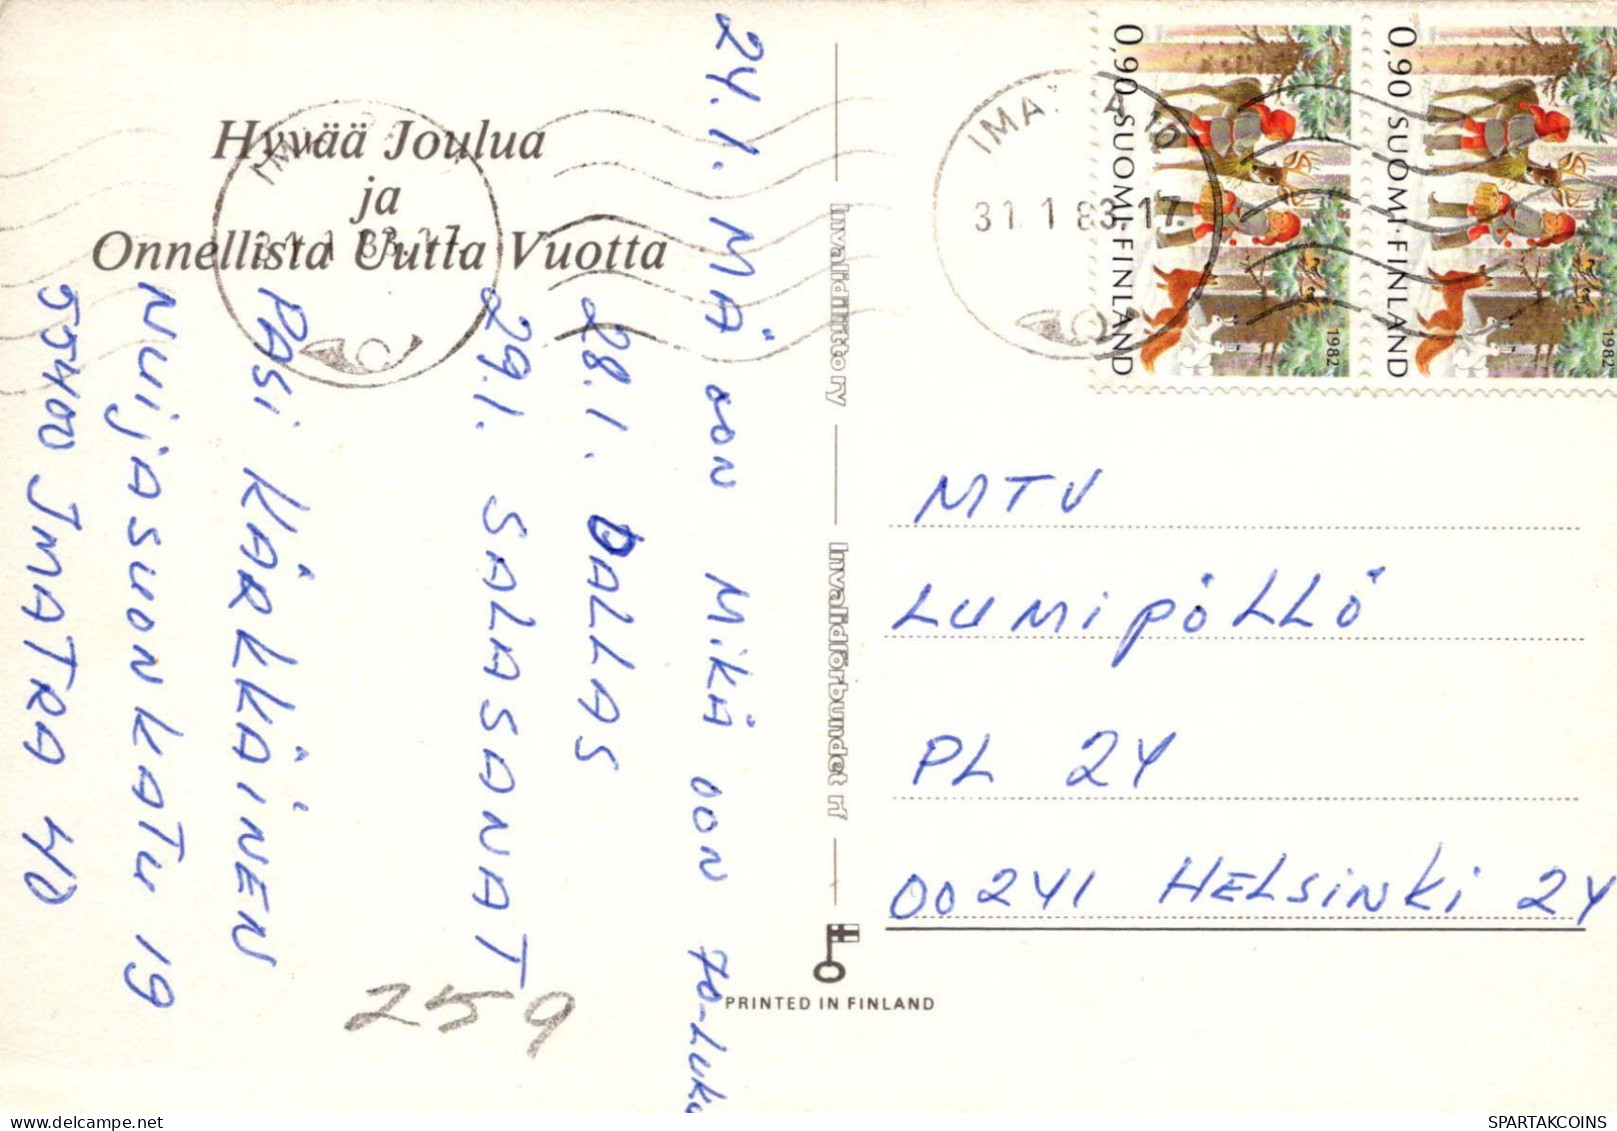 Hyvää Joulua
ja
Onnellista Uutta Vuotta
24.1. MÄ OON MiKÄ OON 70-LUKU
28.1. DALLAS
29.1. SALASANAT
PASi KÄRKKÄiNEN
NUijASUONKATU 19
55400 IMATRA 40
259
Invalidiliitto ry
Invalidförbundet rf
PRINTED IN FINLAND
IMATRA 10
31.1.83.17
0,90 SUOMI·FINLAND
1982
0,90 SUOMI·FINLAND
1982
MTV
LUMiPÖLLÖ
PL 24
00241 HELSiNKi 24
SPARTAKCOINS